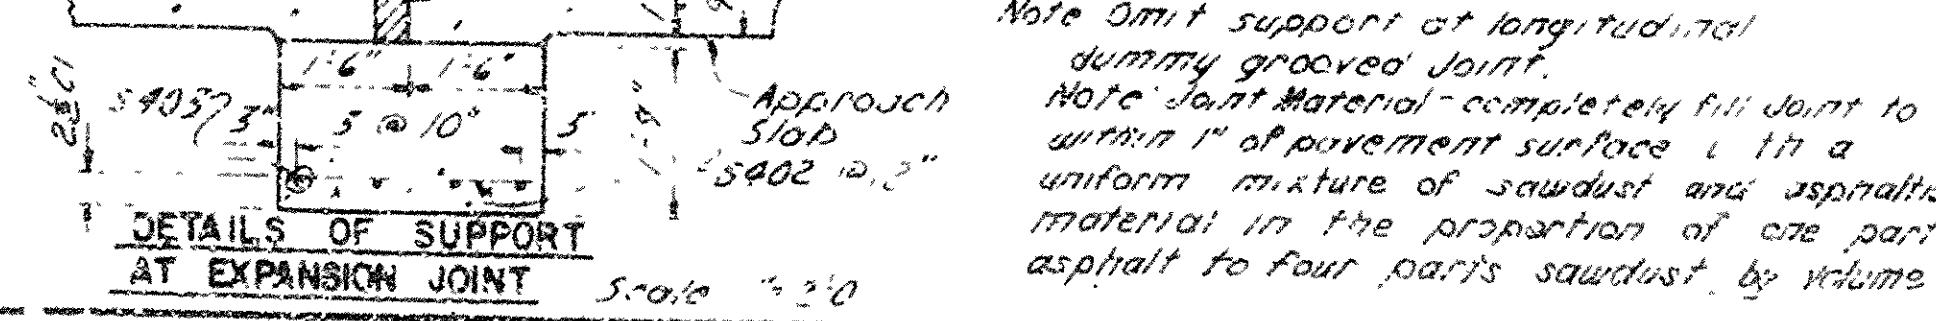 1'-6" 1'-6"
2½" Cl
S403 3" 3 @ 10" 3"
Approach
Slab
S402 @
DETAILS OF SUPPORT
AT EXPANSION JOINT
Scale
Note Omit support at longitudinal
dummy grooved Joint.
Note Joint Material - completely fill Joint to
within 1" of pavement surface with a
uniform mixture of sawdust and asphaltic
material in the proportion of one part
asphalt to four parts sawdust by volume